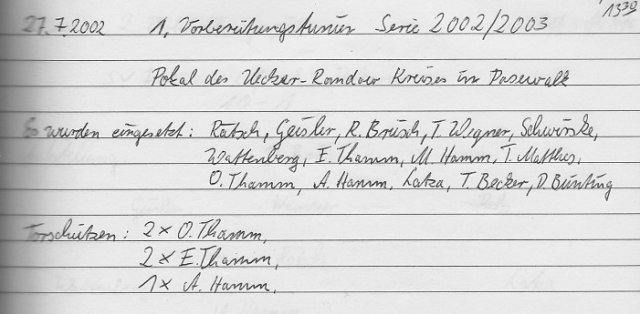 27.7.2002 1. Vorbereitungsturnier Serie 2002/2003 13³⁰
Pokal des Uecker-Randow Kreises in Pasewalk
Es wurden eingesetzt: Rätsch, Geisler, R. Breisch, T. Wegner, Schwirske,
Wattenberg, E. Thamm, M. Hamm, T. Matthes,
O. Thamm, A. Hamm, Latza, T. Becker, D. Bünting
Torschützen: 2x O. Thamm,
2x E. Thamm,
1x A. Hamm,